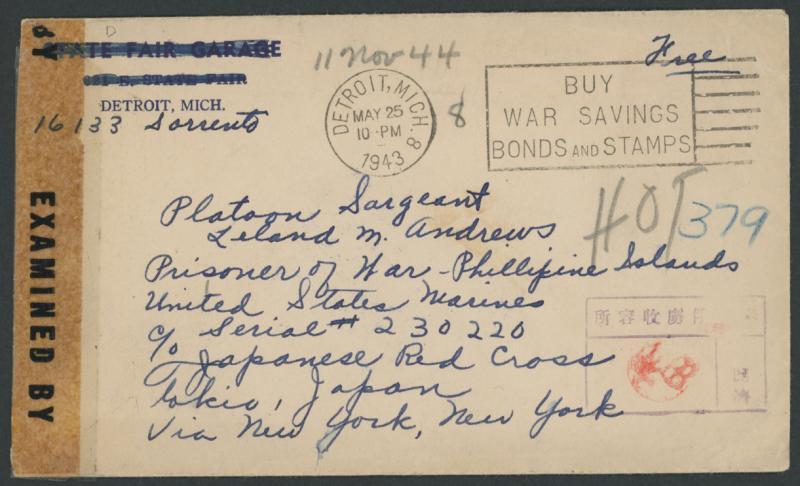 BY
EXAMINED BY
STATE FAIR GARAGE
E. STATE FAIR
DETROIT, MICH.
16133 Sorrento
11 Nov 44
DETROIT, MICH. 8
MAY 25
10 PM
1943
8
Free
BUY
WAR SAVINGS
BONDS AND STAMPS
HOT
379
Platoon Sargeant
Leland M. Andrews
Prisoner of War - Phillipine Islands
United States Marines
Serial # 230220
c/o Japanese Red Cross
Tokio, Japan
Via New York, New York
所容收虜俘